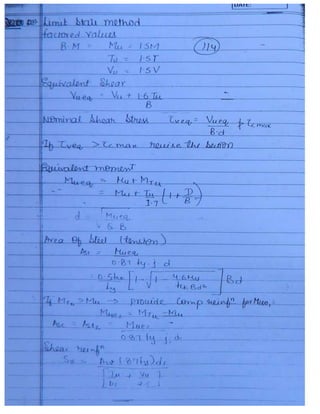 DATE:
Limit State method
factored values
B.M = Mu = 1.5M
114
Tu = 1.5T
Vu = 1.5V
Equivalent Shear
Vueq = Vu + 1.6 Tu
B
Nominal Shear Stress τveq = Vueq ≮ τcmax
B·d
If τveq > τcmax revise the section
Equivalent moment
Mueq = Mu + MTu
= Mu + Tu (1 + D
1.7 B)
d = √Mueq
Area Of Steel (tension)
Ast = Mueq
0.87 fy. j d
= 0.5fck [1 - √1 - 4.6Mu ] Bd
fy fck Bd²
If MTu > Mu → provide Comp reinfⁿ for Mue₂
Mue₂ = MTu - Mu
Asc = Ast₂ = Mue₂
0.87 fy. j. d
Shear reinfⁿ